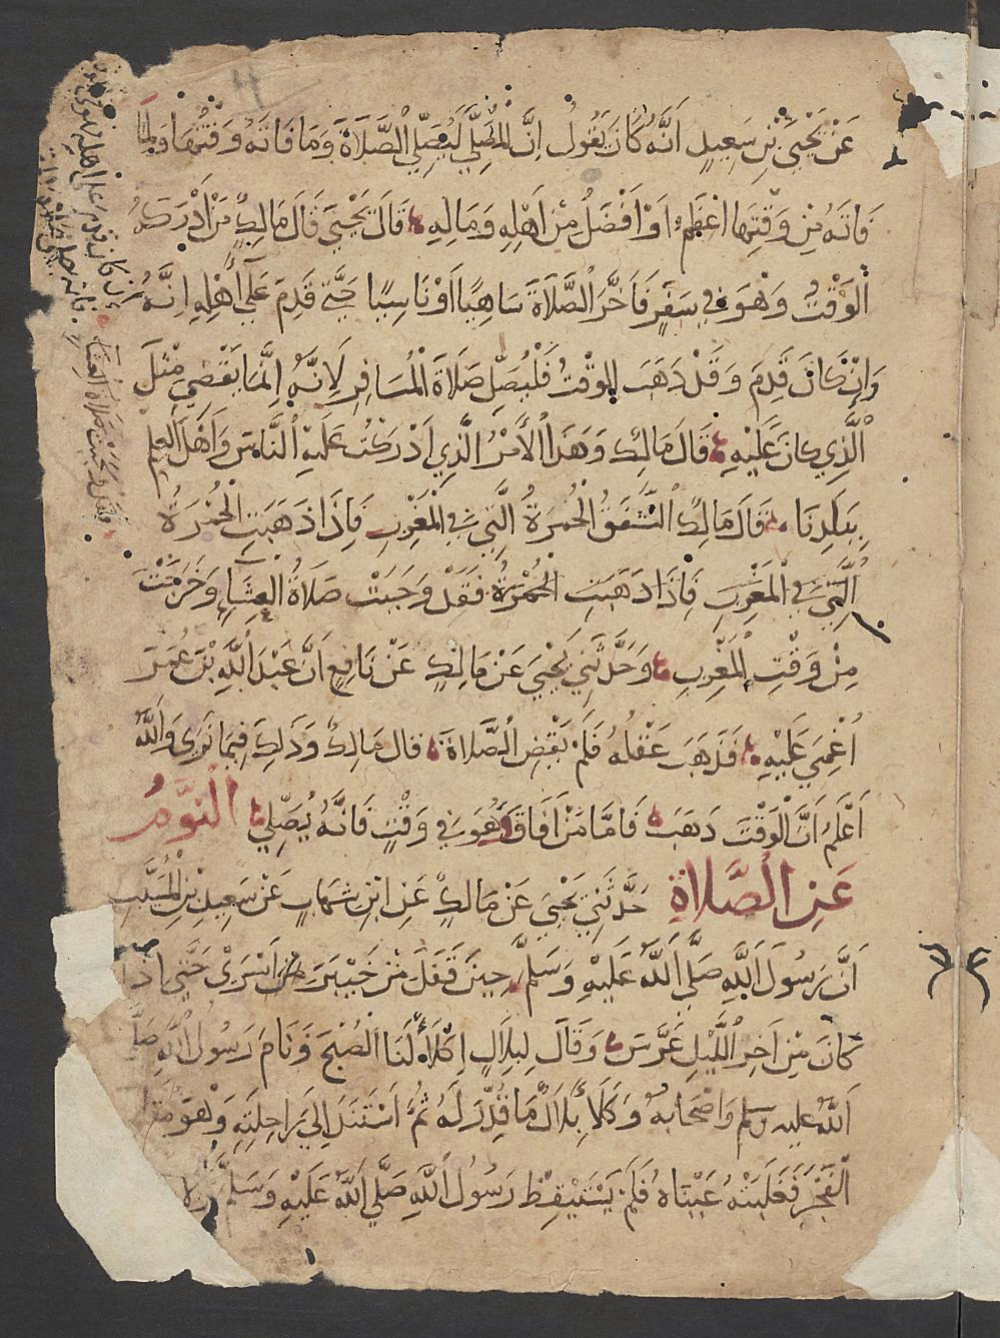 عَنْ يَحْيَى بْنِ سَعِيدٍ اَنَّهُ كَانَ يَقُولُ اِنَّ الْمُصَلِّي لَيُصَلِّي الصَّلَاةَ وَمَا فَاتَهُ وَقْتُهَا وَلَمَا
فَاتَهُ مِنْ وَقْتِهَا اعْظَمُ اَوْ اَفْضَلُ مِنْ اَهْلِهِ وَمَالِهِ قَالَ يَحْيَى قَالَ مَالِكٌ مَنْ اَدْرَكَهُ
الْوَقْتُ وَهْوَ فِي سَفَرٍ فَاَخَّرَ الصَّلَاةَ سَاهِيًا اَوْ نَاسِيًا حَتَّى قَدِمَ عَلَى اَهْلِهِ اِنَّهُ
اِنْ كان قدم على اهله
فانه يصلي
وَاِنْ كَانَ قَدِمَ وَقَدْ ذَهَبَ الْوَقْتُ فَلْيُصَلِّ صَلَاةَ الْمُسَافِرِ لِاَنَّهُ اِنَّمَا يَقْضِي مِثْلَ
الَّذِي كَانَ عَلَيْهِ قَالَ مَالِكٌ وَهَذَا الْاَمْرُ الَّذِي اَدْرَكْتُ عَلَيْهِ النَّاسَ وَاَهْلَ الْعِلْمِ
بِبَلَدِنَا قَالَ مَالِكٌ الشَّفَقُ الْحُمْرَةُ الَّتِي فِي الْمَغْرِبِ فَاِذَا ذَهَبَتِ الْحُمْرَةُ
فقد وجبت صلاة العشاء
الَّتِي فِي الْمَغْرِبِ فَاِذَا ذَهَبَتِ الْحُمْرَةُ فَقَدْ وَجَبَتْ صَلَاةُ الْعِشَاءِ وَخَرَجْتَ
مِنْ وَقْتِ الْمَغْرِبِ وَحَدَّثَنِي يَحْيَى عَنْ مَالِكٍ عَنْ نَافِعٍ اَنَّ عَبْدَ اللَّهِ بْنَ عُمَرَ
اُغْمِيَ عَلَيْهِ فَذَهَبَ عَقْلُهُ فَلَمْ يَقْضِ الصَّلَاةَ قَالَ مَالِكٌ وَذَلِكَ فِيمَا نَرَى وَاللَّهُ
اَعْلَمُ اَنَّ الْوَقْتَ ذَهَبَ فَاَمَّا مَنْ اَفَاقَ وَهُوَ فِي وَقْتٍ فَاِنَّهُ يُصَلِّي النَّوْمُ
عَنِ الصَّلَاةِ حَدَّثَنِي يَحْيَى عَنْ مَالِكٍ عَنِ ابْنِ شِهَابٍ عَنْ سَعِيدِ بْنِ الْمُسَيَّبِ
اَنَّ رَسُولَ اللَّهِ صَلَّى اللَّهُ عَلَيْهِ وَسَلَّمَ حِينَ قَفَلَ مِنْ خَيْبَرَ اَسْرَى حَتَّى اِذَا
كَانَ مِنْ اَخِرِ اللَّيْلِ عَرَّسَ وَقَالَ لِبِلَالٍ اِكْلَأْ لَنَا الصُّبْحَ وَنَامَ رَسُولُ اللَّهِ صَلَّى
اللَّهُ عليه وسلم وَاَصْحَابُهُ وَكَلَأَ بِلَالٌ مَا قُدِّرَ لَهُ ثُمَّ اسْتَنَدَ اِلَى رَاحِلَتِهِ وَهْوَ
الْفَجْرَ فَغَلَبَتْهُ عَيْنَاهُ فَلَمْ يَسْتَيْقِظْ رَسُولُ اللَّهِ صَلَّى اللَّهُ عَلَيْهِ وَسَلَّمَ